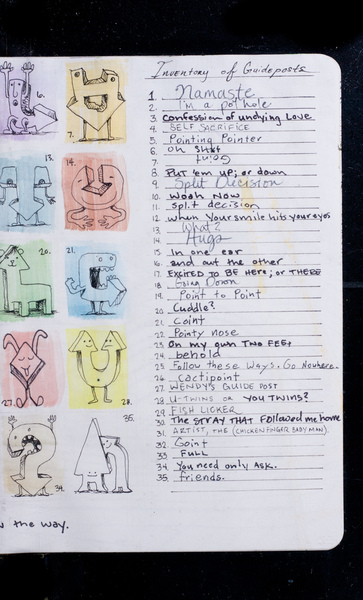 Inventory of Guideposts
1. Namaste
2. I'm a pothole
3. Confession of undying Love
4. SELF SACRIFICE
5. Pointing Pointer
6. Oh Shit
7. Point
8. Put 'em up; or down
9. Split Decision
10. Woah Now
11. split decision
12. when Your smile hits your eyes
13. What?
14. Hugs
15. In one ear
16. and out the other
17. EXCITED TO BE HERE; or THERE
18. Going Down
19. Point to Point
20. Cuddle?
21. Coint
22. Pointy nose
23. On my own TWO FEET
24. behold
25. Follow these Ways. Go Nowhere.
26. Cactipoint
27. WENDY'S GUIDE POST
28. U-TWINS OR YOU TWINS?
29. FISH LICKER
30. The STRAY THAT Followed me home
31. ARTIST, THE (CHICKENFINGER BABYMAN)
32. Goint
33. FULL
34. You need only ASK.
35. friends.
6.
7.
13.
14.
20.
21.
27.
28.
34.
35.
the way.